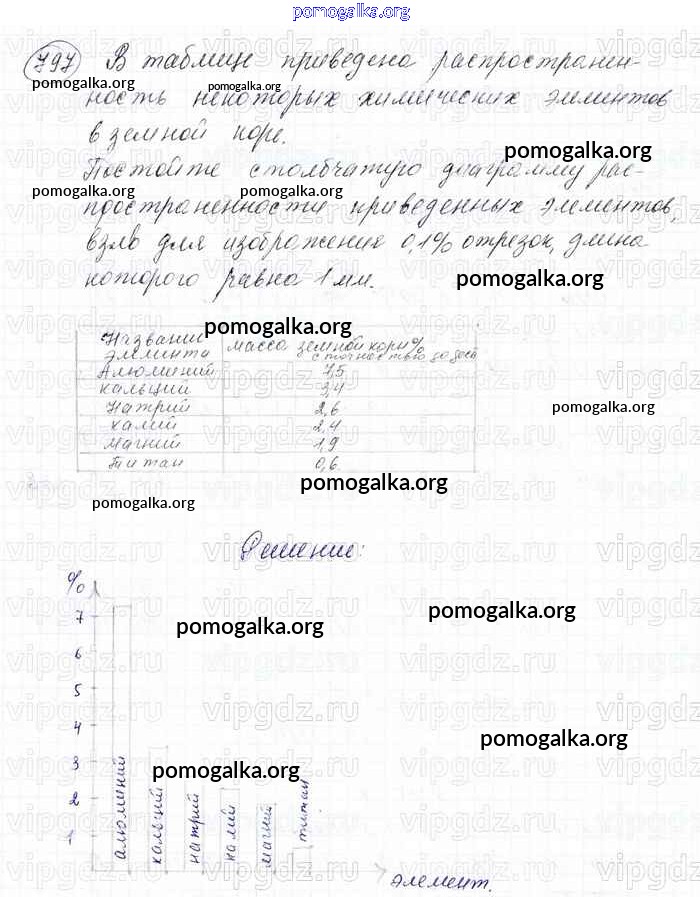 pomogalka.org
797 В таблице приведена распространен-
pomogalka.org
pomogalka.org
ность некоторых химических элементов
в земной коре.
pomogalka.org
Постойте столбчатую диаграмму рас-
pomogalka.org
pomogalka.org
пространенности приведенных элементов,
взяв для изображения 0,1% отрезок, длина
которого равна 1 мм.
pomogalka.org
pomogalka.org
Название элемента масса земной кори%
с точностью до
Алюминий 7,5
кальций 3,4
Натрий 2,6
калий 2,4
магний 1,9
Титан 0,6
pomogalka.org
pomogalka.org
pomogalka.org
Решение:
%
7
6
5
4
3
2
1
pomogalka.org
pomogalka.org
pomogalka.org
pomogalka.org
алюминий
кальций
натрий
калий
магний
титан
элемент.
vipgdz.ru